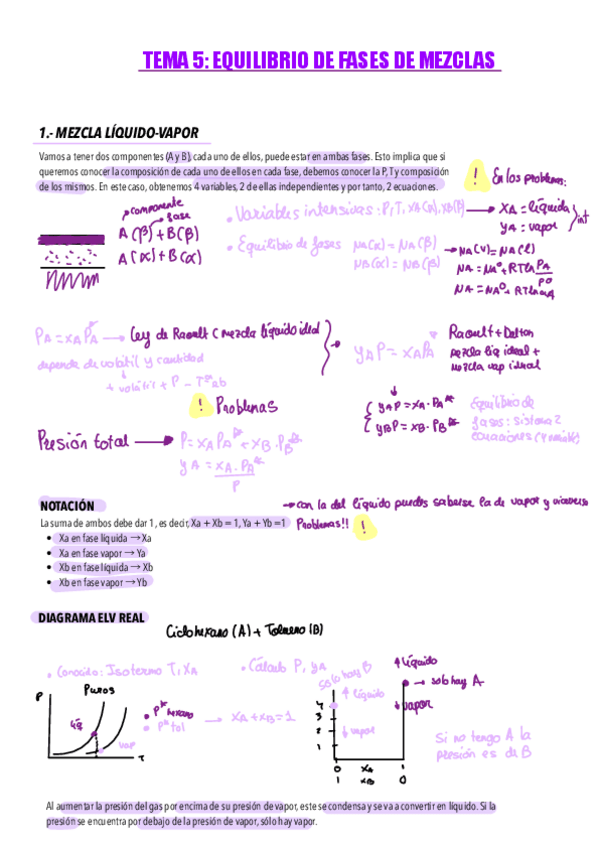 TEMA 5: EQUILIBRIO DE FASES DE MEZCLAS
1.- MEZCLA LÍQUIDO-VAPOR
Vamos a tener dos componentes (A y B), cada uno de ellos, puede estar en ambas fases. Esto implica que si
queremos conocer la composición de cada uno de ellos en cada fase, debemos conocer la P, T y composición
de los mismos. En este caso, obtenemos 4 variables, 2 de ellas independientes y por tanto, 2 ecuaciones.
! En los problemas:
componente
fase
A(β) + B(β)
A(α) + B(α)
• Variables intensivas: P, T, XA(α), XB(β)
XA = líquida
yA = vapor
int
• Equilibrio de fases
μA(α) = μA(β)
μB(α) = μB(β)
μA(v) = μA(l)
PA = XAPA* → Ley de Raoult (mezcla líquido ideal
depende de volátil y cantidad
+ volátil + P
yAP = XAPA*
Raoult + Dalton
mezcla liq ideal +
mezcla vap ideal
! Problemas
yAP = XA·PA*
yBP = XB·PB*
Equilibrio de
fases: sistema 2
ecuaciones
Presión total → P = XAPA* + XB·PB*
yA = XA·PA*
P
→ con la del líquido puedes saberse la de vapor y viceversa
NOTACIÓN
La suma de ambos debe dar 1, es decir, Xa + Xb = 1, Ya + Yb =1
Problemas!! !
• Xa en fase líquida → Xa
• Xa en fase vapor → Ya
• Xb en fase líquida → Xb
• Xb en fase vapor → Yb
DIAGRAMA ELV REAL
Ciclohexano (A) + Tolueno (B)
• Conocido: Isotermo T, XA
• Cálculo P, yA
P
Puros
líq
vap
T
• P* hexano
• P* tol
→ XA + XB = 1
solo hay B
↑ líquido
↓ vapor
4
3
2
1
0 XA 1
1 XB 0
↑ líquido
→ solo hay A
↓ vapor
Si no tengo A la
presión es de B
Al aumentar la presión del gas por encima de su presión de vapor, este se condensa y se va a convertir en líquido. Si la
presión se encuentra por debajo de la presión de vapor, sólo hay vapor.